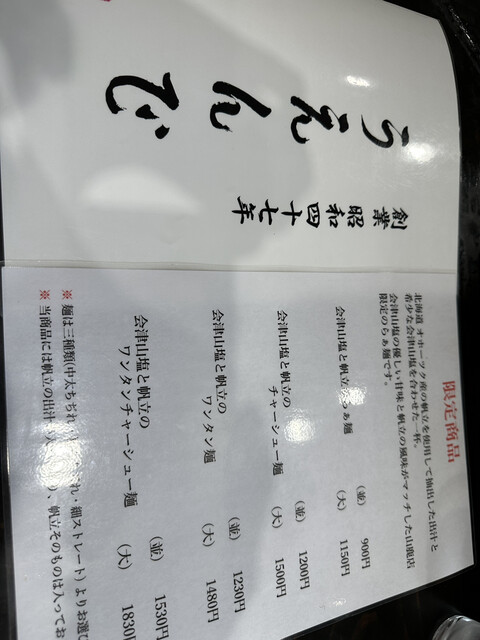 うえんで
創業 昭和四十七年
限定商品
北海道 オホーツク産の帆立を使用して抽出した出汁と
希少な会津山塩を合わせた一杯。
会津山塩の優しい甘味と帆立の風味がマッチした山鹿店
限定のらぁ麺です。
会津山塩と帆立 らぁ麺
(並) 900円
(大) 1150円
会津山塩と帆立の
チャーシュー麺
(並) 1200円
(大) 1500円
会津山塩と帆立の
ワンタン麺
(並) 1230円
(大) 1480円
会津山塩と帆立の
ワンタンチャーシュー麺
(並) 1530円
(大) 1830円
※ 麺は三種類(中太ちぢれ れ・細ストレート)よりお選び
※ 当商品には帆立の出汁 入 、帆立そのものは入ってお